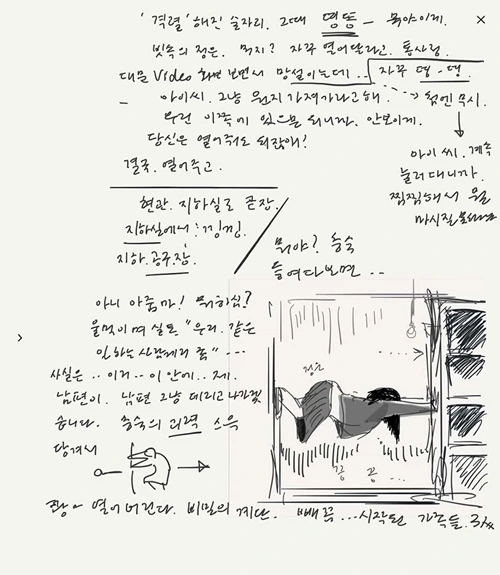 '격렬'해진 술자리. 그때 띵똥 - 뭐야 이게.
빗속의 정은. 뭐지? 자꾸 열어달라고. 통사정.
대문 Video 화면 보면서 망설이는데.. 자꾸 띵-띵.
- 아이씨. 그냥 뭔지 가져가라고 해. 첨엔 무시.
우린 이쪽에 있으면 되니까. 안보이게.
당신은 열어줘도 되잖애!
결국. 열어주고.
아이 씨. 계속
눌러대니까.
찜찜해서 뭘
마시질
현관. 지하실로 곧장.
지하실에서 : 낑낑.
지하.공구.장
뭐야? 충숙
들여다보면 ..
아니 아줌마! 뭐하심?
울먹이며 실토 "우리. 같은
일하는 사람에게 좀" ---
사실은 .. 이거 .. 이 안에.. 제.
남편이. 남편 그냥 데리고 나가겠
습니다. 충숙의 괴력 스윽
당겨서
정은
끙 끙 ..
쾅 ~ 열어버린다. 비밀의 계단. 빼꼼 ...시작된 가족들.